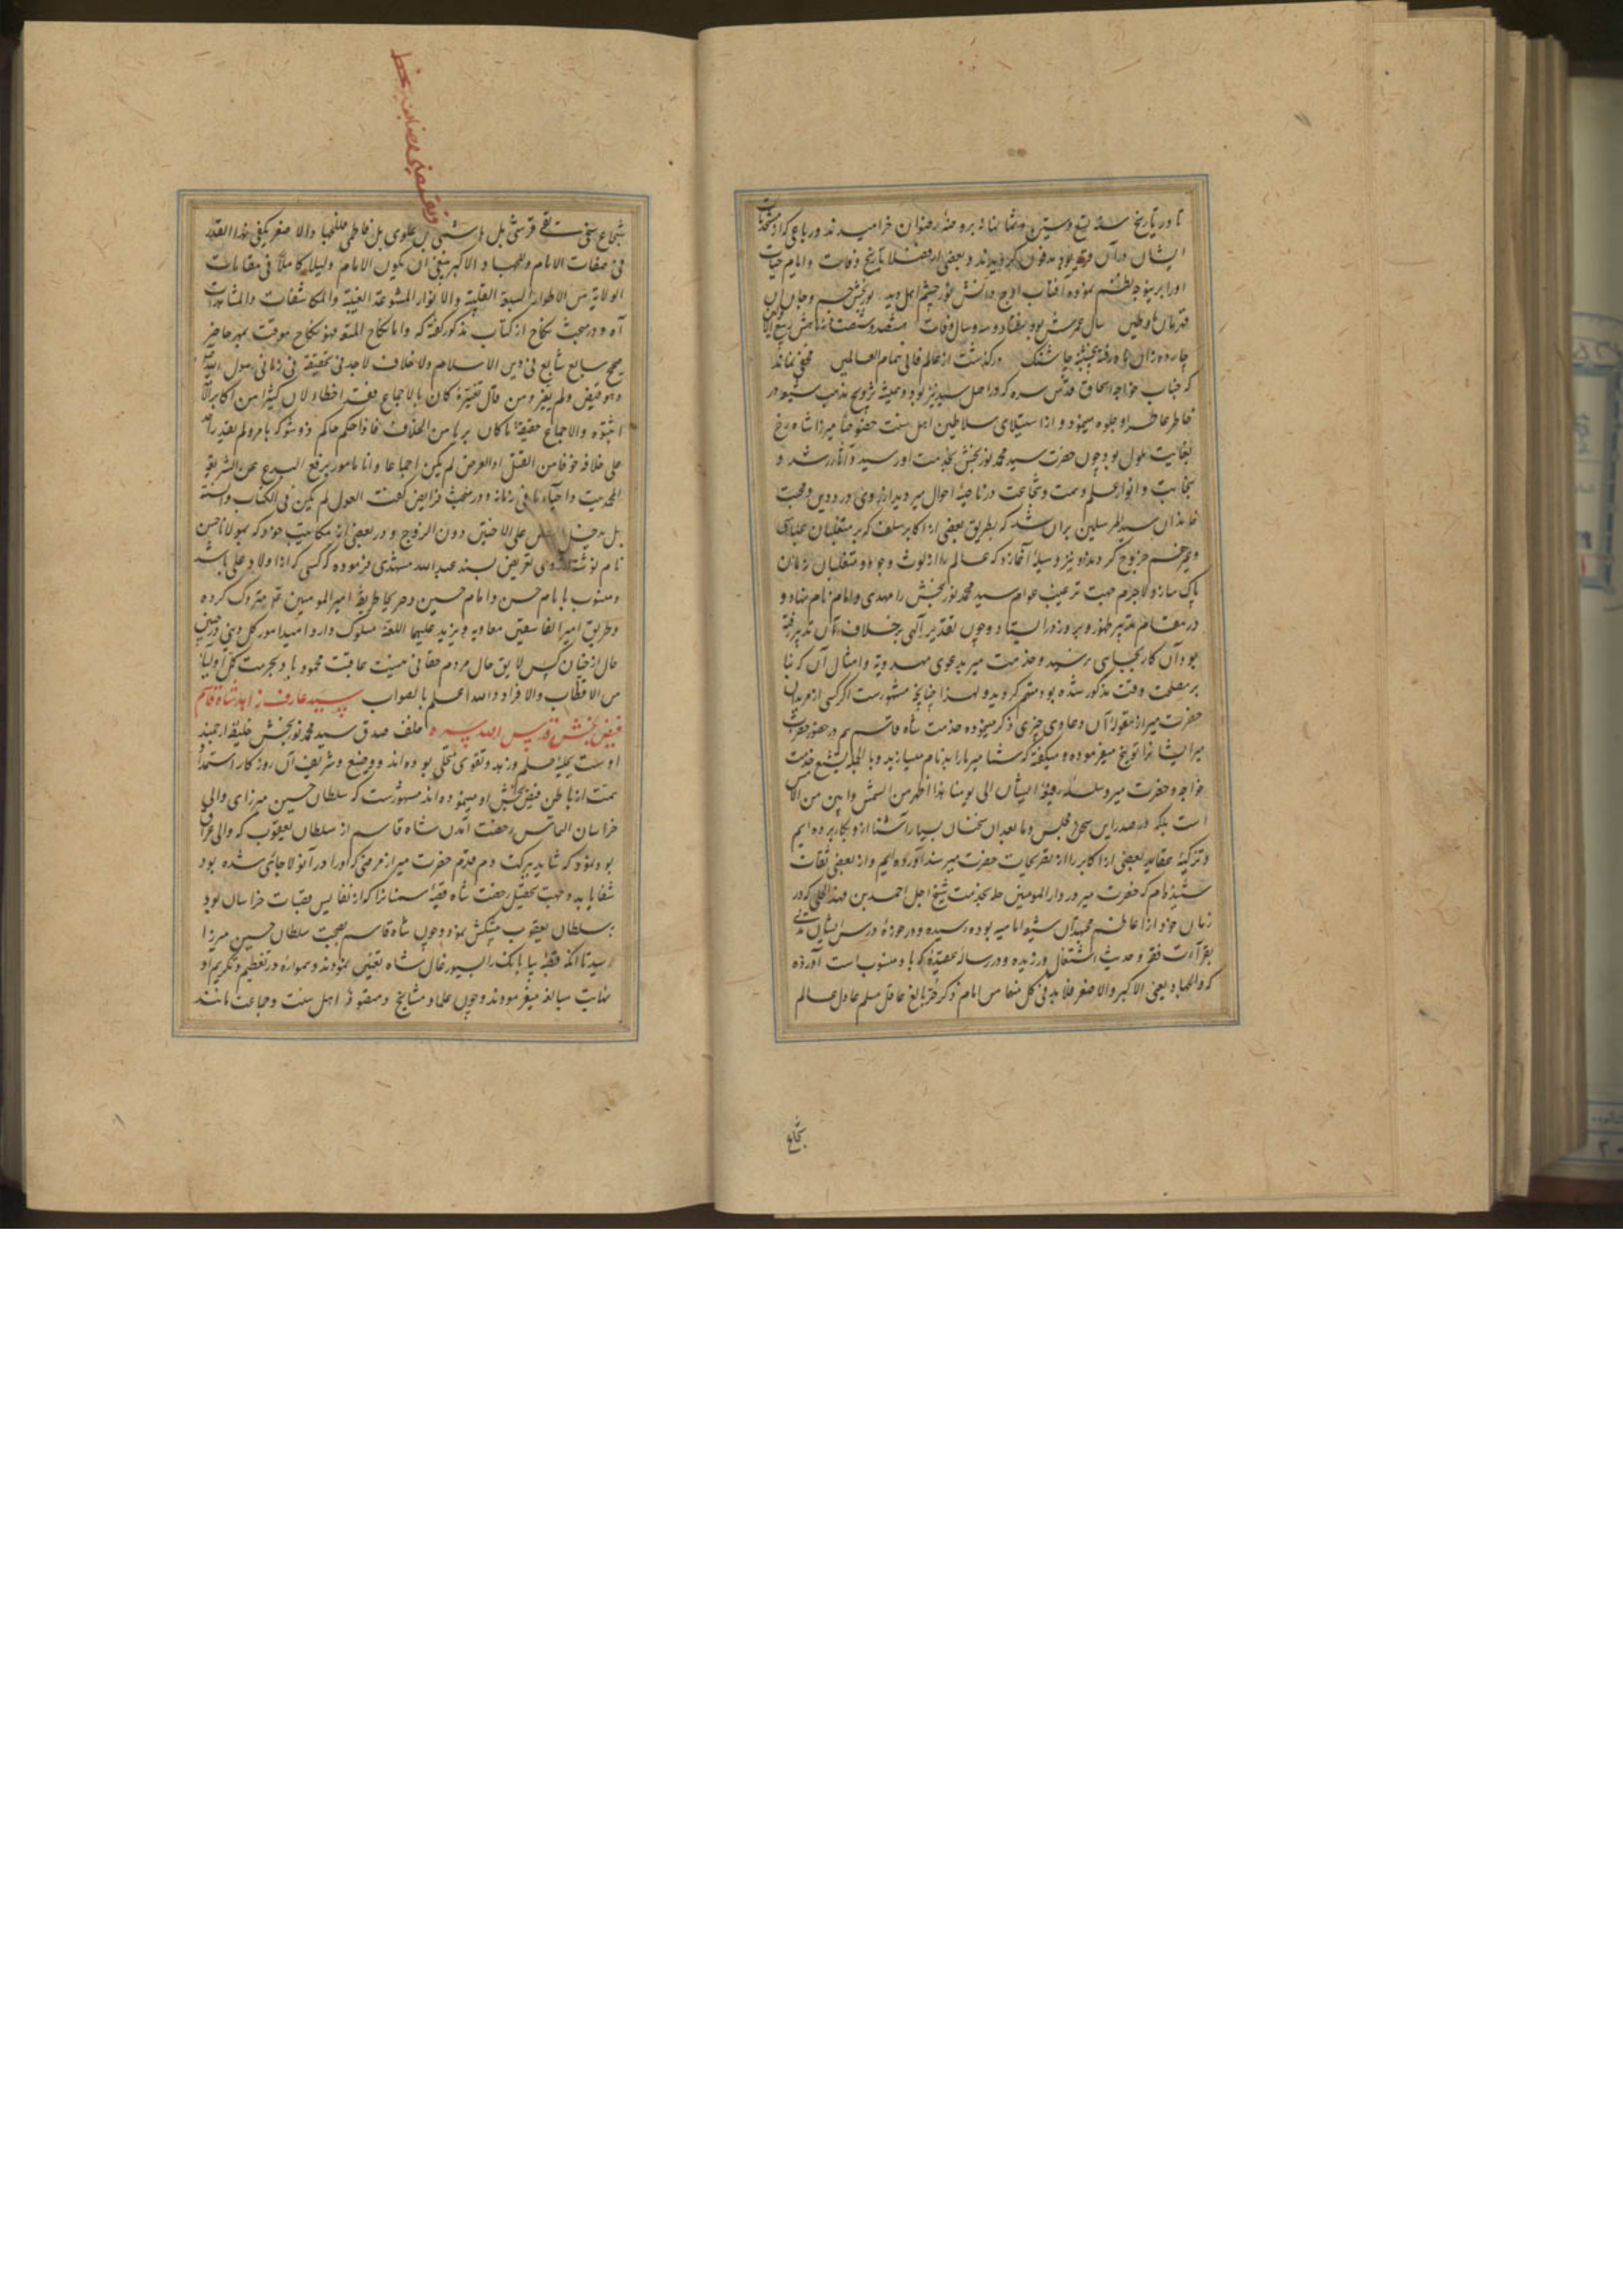 تا در تاریخ سنه تسع وستین وثمانمائه بروضهٔ رضوان خرامیدند ورباعی که از منشآت
ایشان در آن قریه بود مدفون گردیدند و بعضی از فضلا تاریخ وفات وایام حیات
اورا برینوجه نظم نموده آفتاب اوج دانش نور چشم اهل دید نوربخش جسم وجان آن
قهرمان ماوطین سال عمرش بود هفتاد وسه وسال وفات هشصد وشصت نه
چارده زان ماه رفته پنجشنبه چاشتگه درگذشت از عالم فانی تمام العالمین مخفی نماند
که جناب خواجه اسحاق قدس سره که در اصل سید نیز بود وهمیشه ترویج مذهب شیعه در
خاطر عاطر او جلوه مینمود و از استیلای سلاطین اهل سنت خصوصا میرزا شاه رخ
بغایت ملول بود چون حضرت سید محمد نوربخش بخدمت او رسید و آثار رشد و
نجابت وانوار علم وهمت وشجاعت در ناصیهٔ احوال میر دید از روی درد دین ومحبت
خاندان سید المرسلین بران شد که بطریق بعضی از اکابر سلف که بر متغلبان عباسی
وغیرهم خروج کردند او نیز وسیلهٔ آغازد که عالم را از لوث وجود متغلبان زمان
پاک سازد لاجرم جهت ترغیب عوام سید محمد نوربخش را مهدی وامام نام نهاد و
در مقام تدبیر ظهور وبروز در ایستاد وچون تقدیر الهی برخلاف آن تدبیر رفته
بود آن کار بجایی نرسید وخدمت میر بدعوی مهدویه وامثال آن که بنا
بر مصلحت وقت مذکور شده بود متهم گردید ولهذا چنانچه مشهورست اگر کسی از مریدان
حضرت میر از مقولهٔ آن دعاوی چیزی ذکر مینموده خدمت شاه قاسم هم در حضور حضرت
میر ایشانرا توبیخ میفرموده ومیگفته که شما میر ما را بدنام میسازید وبالجمله تشیع خدمت
خواجه وحضرت میر وسلسلهٔ رفیعهٔ ایشان الی یومنا هذا اظهر من الشمس وابین من الامس
است بلکه در صدر این مجلس وما بعد آن سخنان بسیار آشنا ازو بکار برده ایم
وتزکیهٔ عقاید بعضی از اکابر را از تقریحات حضرت میر سند آورده ایم واز بعضی ثقات
شنیده ام که حضرت میر در دار المومنین حله بخدمت شیخ اجل احمد بن فهد الحلی که در
زمان خود از اعاظم مجتهدان شیعه امامیه بوده رسیده ودر حوزهٔ درس ایشان مدتی
بقراءت فقه وحدیث اشتغال ورزیده ودر رسالهٔ عقیده که باو منسوب است آورده
که والجهاد یعنی الاکبر والاصغر فلا بد فی کل منهما من امام ذکر حر بالغ عاقل مسلم عادل عالم
شجاع
شجاع سخی تقی قرشی بل هاشمی بل علوی بل فاطمی فللجهاد الاصغر یکفی هذا القدر
فی صفات الامام وللجهاد الاکبر ینبغی ان یکون الامام ولیا کاملا فی مقامات
الولایة من الاطوار السبعة القلبیة والانوار المتنوعة الغیبیة والمکاشفات والمشاهدات
آه ودر مبحث نکاح از کتاب مذکور گفته که واما نکاح المتعه فهو نکاح موقت بمهر حاضر
صحیح سایع شایع فی دین الاسلام ولا خلاف لاحد فی تحقیقه فی زمانی رسول الله
ولم یغیر ومن قال تغییره کان بالاجماع فقد اخطا لان کثیرا من اکابر
اثبتوه والاجماع حقیقة ما کان بریا من الخلاف فاذا حکم حاکم ذو شوکة بامر ولم یقدر احد
علی خلافه خوفا من القتل او العرض لم یکن اجماعا وانا مامور برفع البدع عن الشریعة
المحمدیه واحیاء ما فی زمانه ودر مبحث فرایض گفته العول لم یکن فی الکتاب والسنة
بل یدخل النقص علی الاخس دون الزوج ودر بعضی از مکاتیب خود که بمولانا حسن
نام نوشته تعریض بسند عبدالله مشهدی فرموده که کسی که از اولاد علی باشد
ومنسوب بامام حسن وامام حسین وهر یکجا طریق امیر المومنین علی متروک کرده
وطریق امیر الفاسقین معاویه ویزید علیهما اللعنة مسلوک دارد امید امور کلی دینی در چنین
حال از چنان کس لایق حال مردم حقانی نیست عاقبت محمود باد بحرمت کمل اولیائه
من الاقطاب والافراد والله اعلم بالصواب سید عارف زاهد شاه قاسم
فیض بخش قدس الله سره خلف صدق سید محمد نوربخش خلیفهٔ ارجمند
اوست بحلیهٔ علم وزهد وتقوی متحلی بوده اند ووضیع وشریف آن روزگار استمداد
همت از باطن فیض بخش او مینموده اند مشهورست که سلطان حسین میرزای والی
خراسان التماس رخصت آمدن شاه قاسم از سلطان یعقوب که والی عراق
بود نمود که شاید ببرکت دم قدم حضرت میر از مرضی که او را در آنولا حادث شده بود
شفا یابد وجهت تحصیل رخصت شاه قصبهٔ سمنانرا که از نفایس قصبات خراسان بود
بسلطان یعقوب پیشکش نمود وچون شاه قاسم بصحبت سلطان حسین میرزا
رسید تا آنکه قصبه بیابانک را بسیورغال شاه تعیین نمودند وهمواره در تعظیم وتکریم او
بغایت مبالغه میفرمودند وچون علما ومشایخ ومتصوفه اهل سنت وجماعت مانند